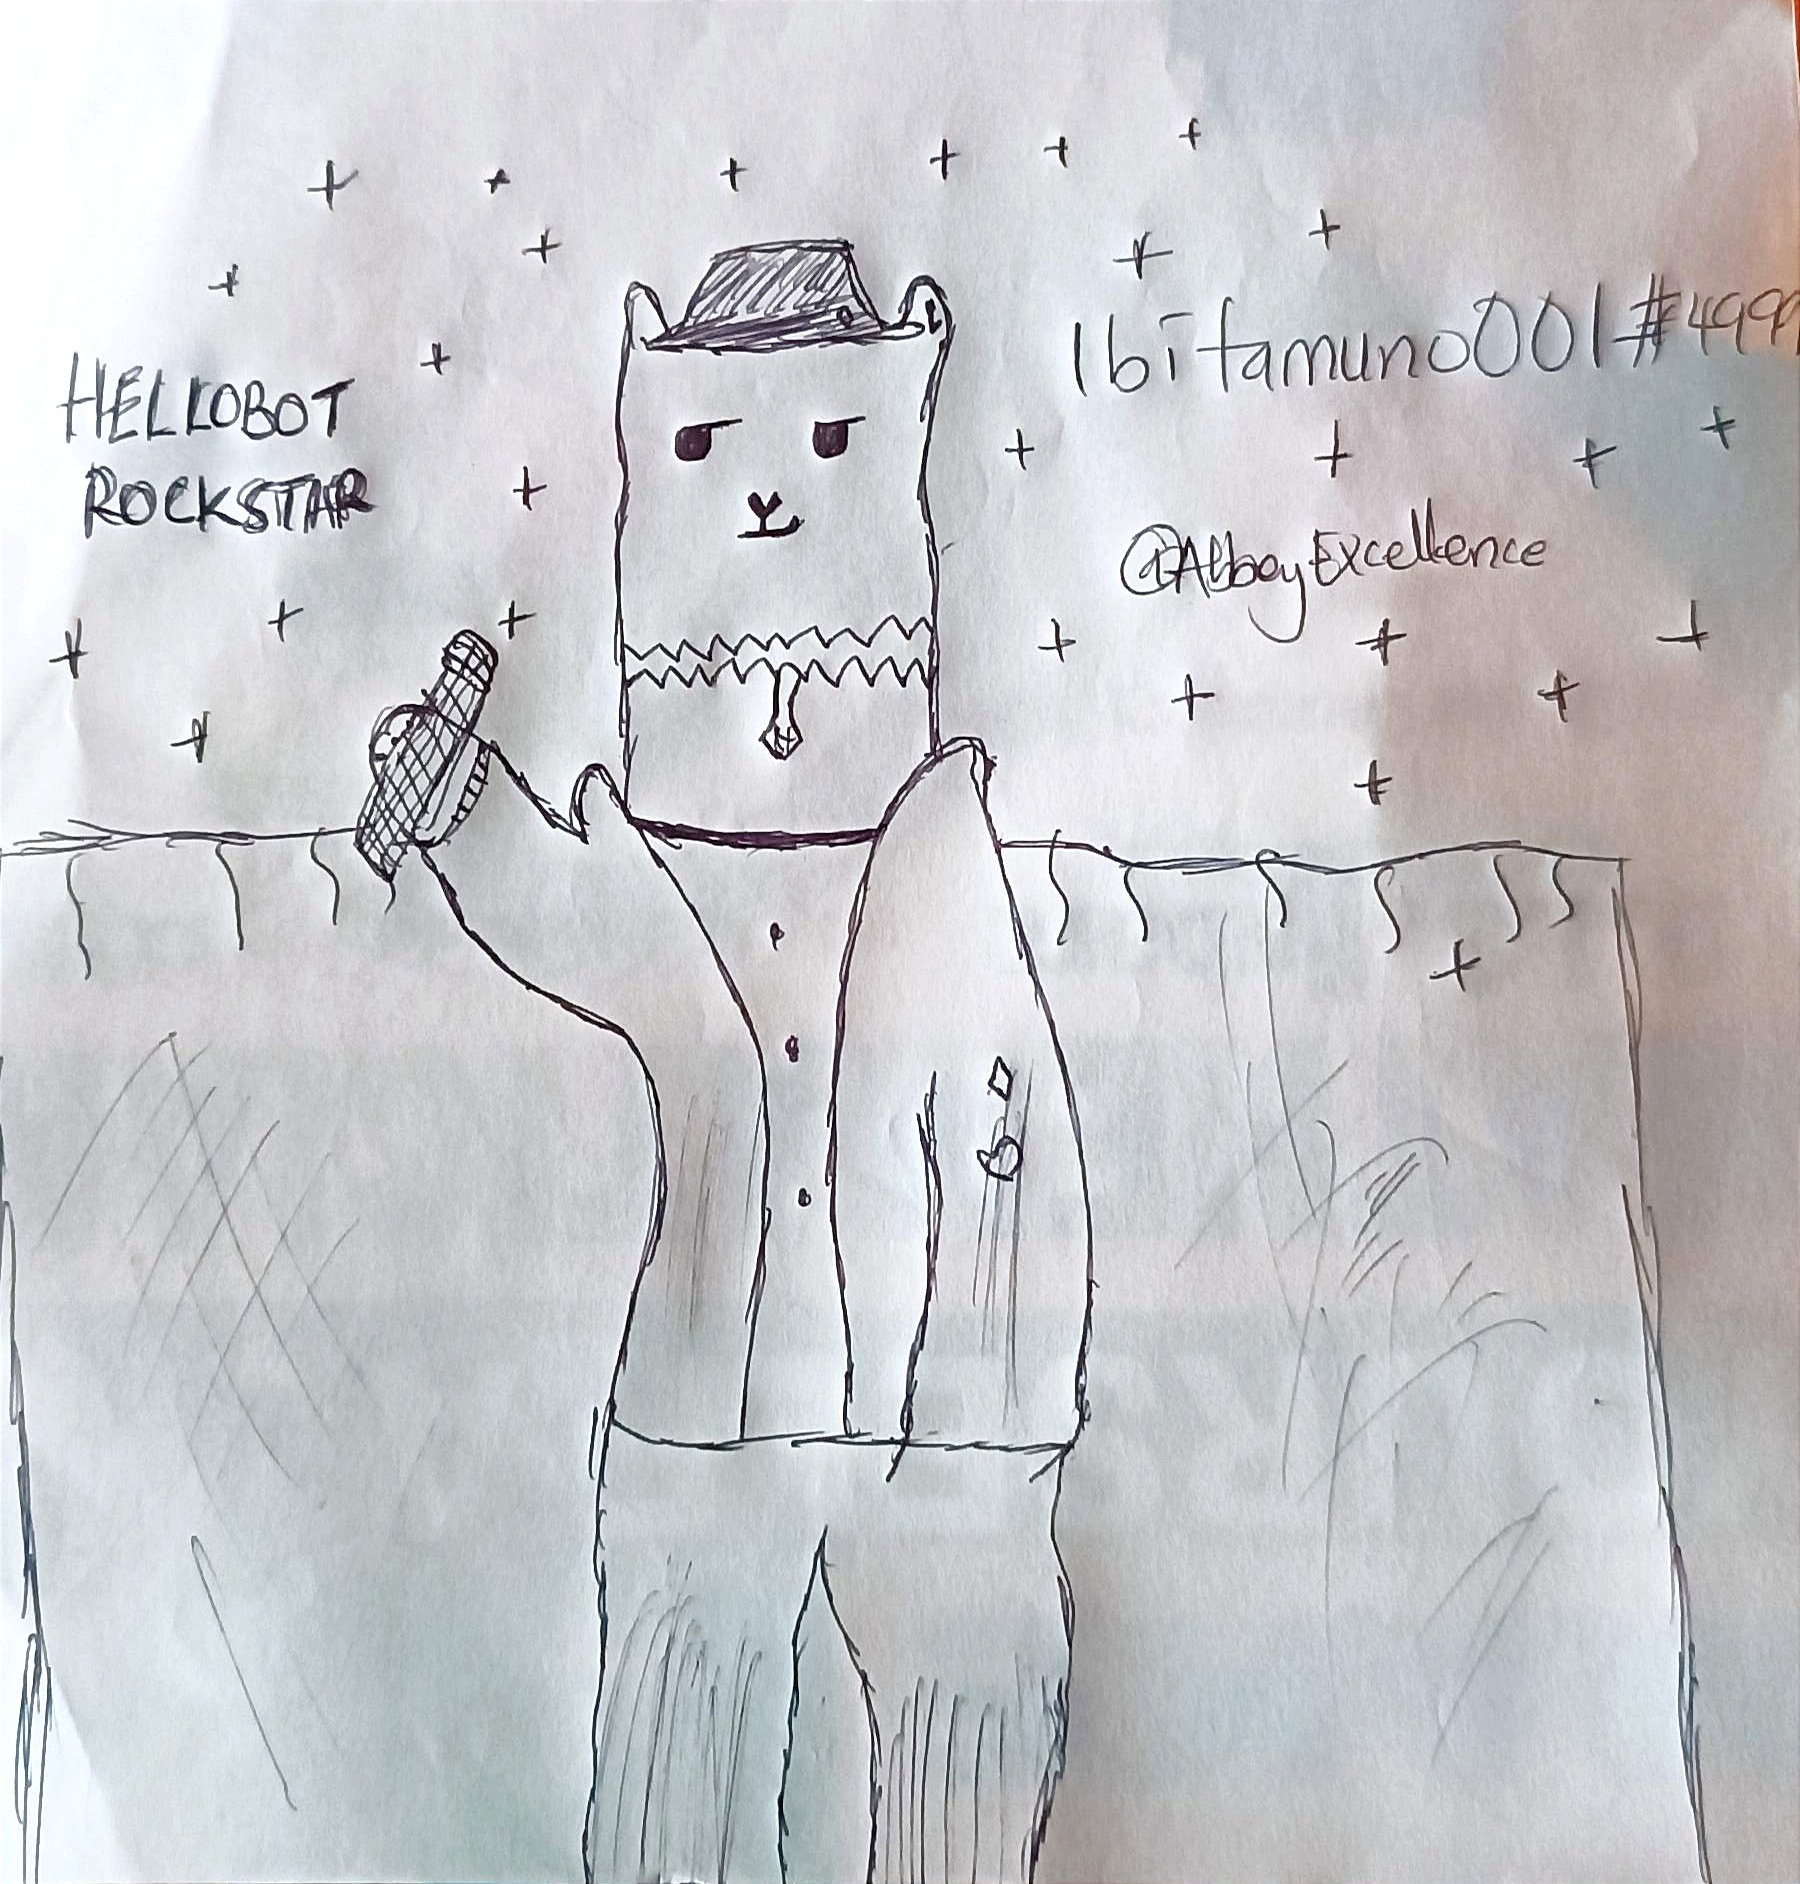 HELLOBOT
ROCKSTAR
Ibitamuno001#4999
@AbbeyExcellence